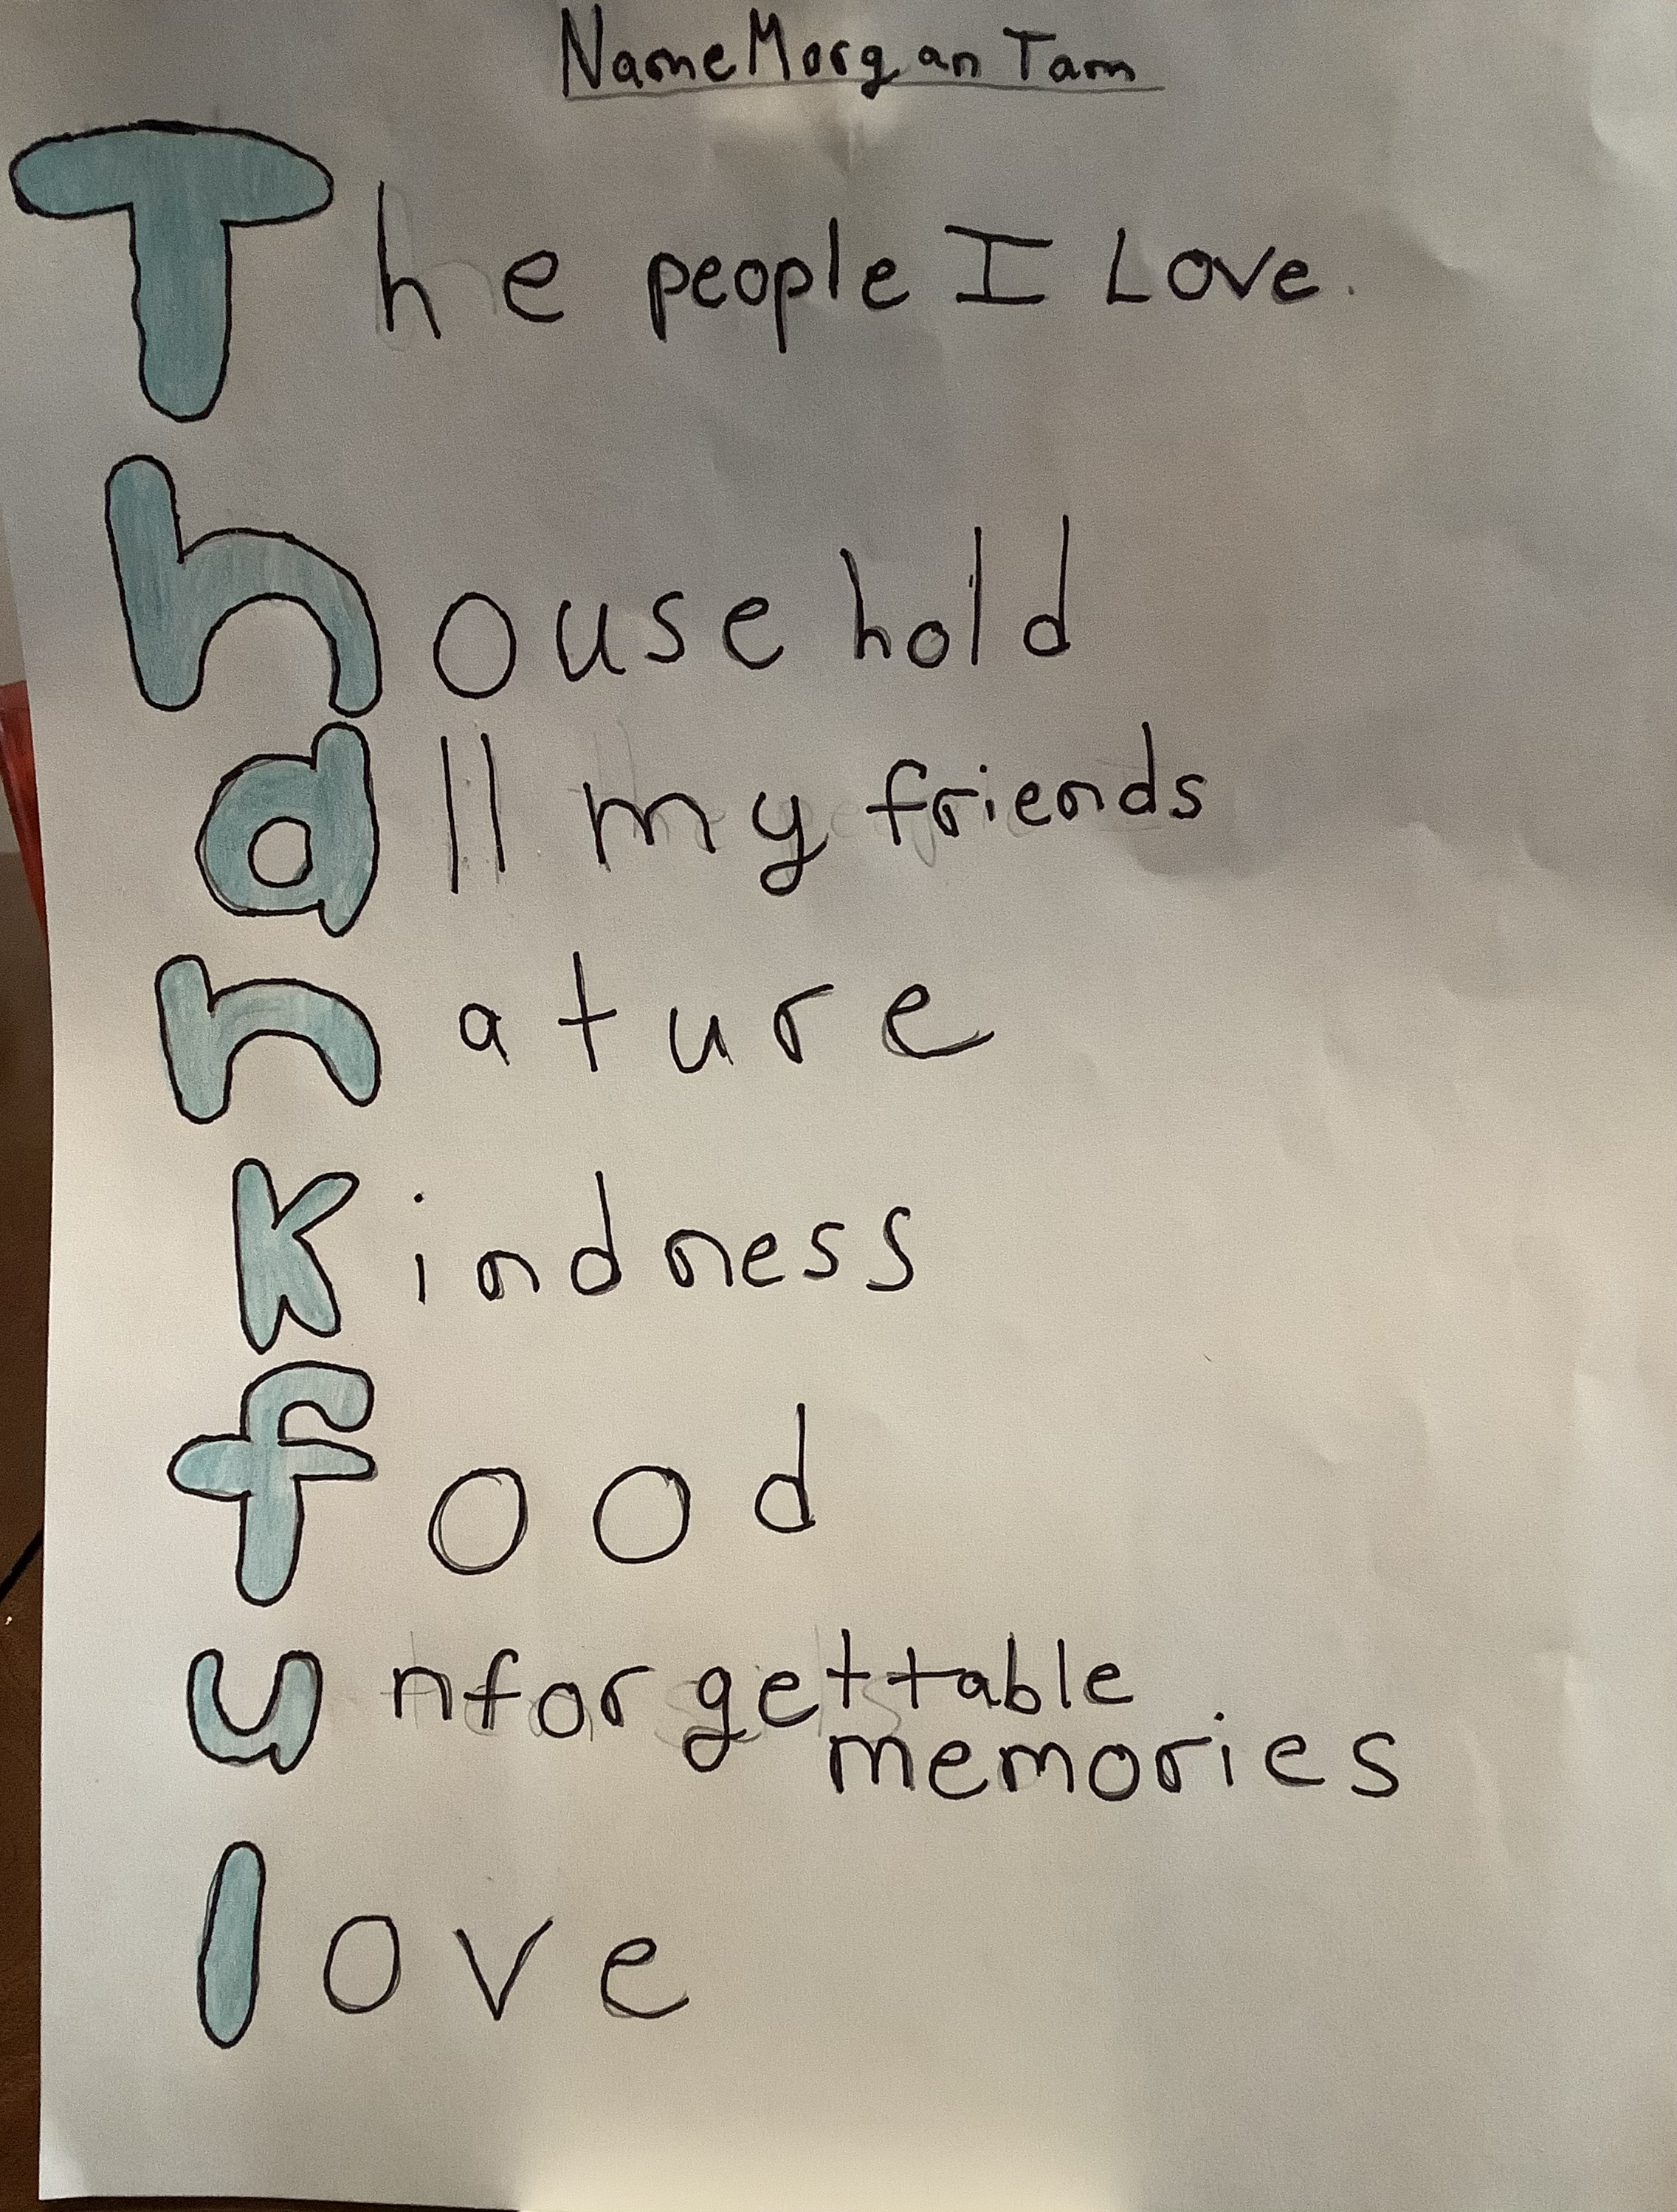 Name Morgan Tam
The people I Love.
household
all my friends
nature
kindness
food
unforgettable
memories
love